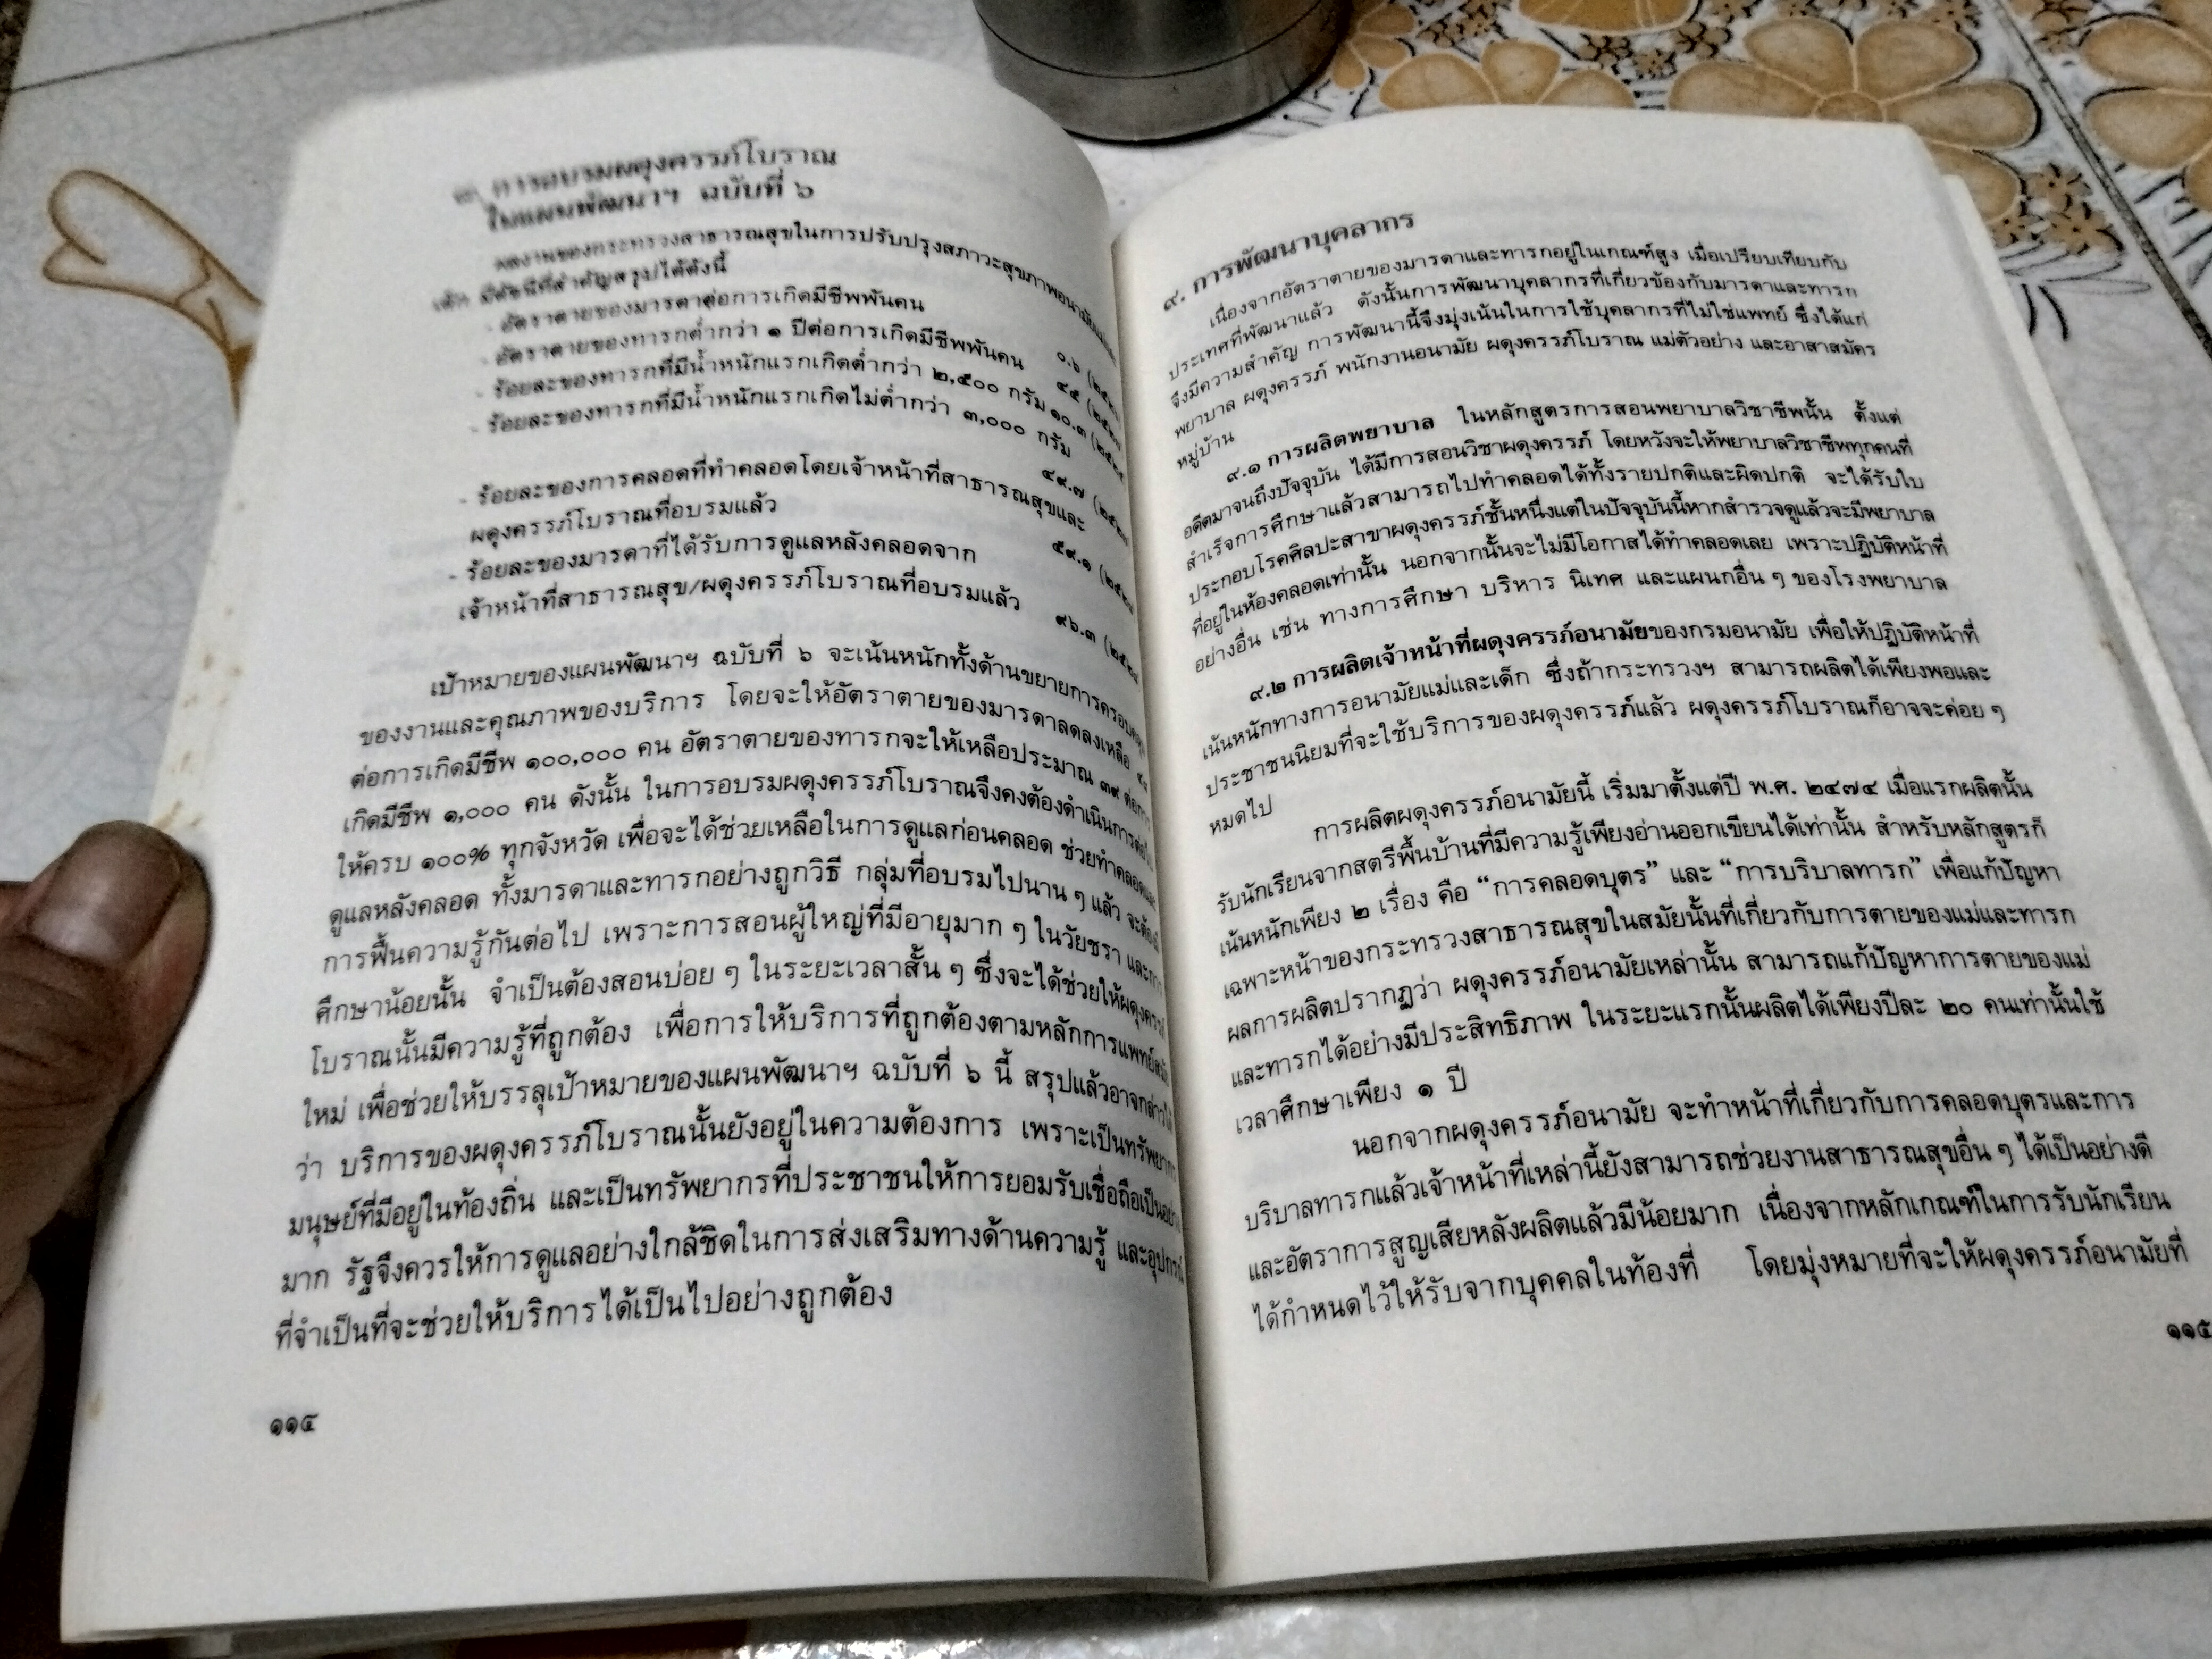 การอบรมผดุงครรภ์โบราณ
ในแผนพัฒนาฯ ฉบับที่ ๖
ผลงานของกระทรวงสาธารณสุขในการปรับปรุงสภาวะสุขภาพอนามัย
เด็ก มีดัชนีที่สำคัญสรุปได้ดังนี้
- อัตราตายของมารดาต่อการเกิดมีชีพพันคน ๐.๖
- อัตราตายของทารกต่ำกว่า ๑ ปีต่อการเกิดมีชีพพันคน ๔๕
- ร้อยละของทารกที่มีน้ำหนักแรกเกิดต่ำกว่า ๒,๕๐๐ กรัม ๑๐.๓
- ร้อยละของทารกที่มีน้ำหนักแรกเกิดไม่ต่ำกว่า ๓,๐๐๐ กรัม
๔๙.๗
- ร้อยละของการคลอดที่ทำคลอดโดยเจ้าหน้าที่สาธารณสุขและ
ผดุงครรภ์โบราณที่อบรมแล้ว ๕๙.๑
- ร้อยละของมารดาที่ได้รับการดูแลหลังคลอดจาก
เจ้าหน้าที่สาธารณสุข/ผดุงครรภ์โบราณที่อบรมแล้ว ๙๖.๓
เป้าหมายของแผนพัฒนาฯ ฉบับที่ ๖ จะเน้นหนักทั้งด้านขยายการครอบคลุม
ของงานและคุณภาพของบริการ โดยจะให้อัตราตายของมารดาลดลงเหลือ
ต่อการเกิดมีชีพ ๑๐๐,๐๐๐ คน อัตราตายของทารกจะให้เหลือประมาณ ๓๙ ต่อการ
เกิดมีชีพ ๑,๐๐๐ คน ดังนั้น ในการอบรมผดุงครรภ์โบราณจึงคงต้องดำเนินการต่อไป
ให้ครบ ๑๐๐% ทุกจังหวัด เพื่อจะได้ช่วยเหลือในการดูแลก่อนคลอด ช่วยทำคลอดและ
ดูแลหลังคลอด ทั้งมารดาและทารกอย่างถูกวิธี กลุ่มที่อบรมไปนาน ๆ แล้ว จะต้องมี
การฟื้นความรู้กันต่อไป เพราะการสอนผู้ใหญ่ที่มีอายุมาก ๆ ในวัยชรา และการ
ศึกษาน้อยนั้น จำเป็นต้องสอนบ่อย ๆ ในระยะเวลาสั้น ๆ ซึ่งจะได้ช่วยให้ผดุงครรภ์
โบราณนั้นมีความรู้ที่ถูกต้อง เพื่อการให้บริการที่ถูกต้องตามหลักการแพทย์สมัย
ใหม่ เพื่อช่วยให้บรรลุเป้าหมายของแผนพัฒนาฯ ฉบับที่ ๖ นี้ สรุปแล้วอาจกล่าวได้
ว่า บริการของผดุงครรภ์โบราณนั้นยังอยู่ในความต้องการ เพราะเป็นทรัพยากร
มนุษย์ที่มีอยู่ในท้องถิ่น และเป็นทรัพยากรที่ประชาชนให้การยอมรับเชื่อถือเป็นอย่าง
มาก รัฐจึงควรให้การดูแลอย่างใกล้ชิดในการส่งเสริมทางด้านความรู้ และอุปกรณ์
ที่จำเป็นที่จะช่วยให้บริการได้เป็นไปอย่างถูกต้อง
๑๑๔
๙. การพัฒนาบุคลากร
เนื่องจากอัตราตายของมารดาและทารกอยู่ในเกณฑ์สูง เมื่อเปรียบเทียบกับ
ประเทศที่พัฒนาแล้ว ดังนั้นการพัฒนาบุคลากรที่เกี่ยวข้องกับมารดาและทารก
จึงมีความสำคัญ การพัฒนานี้จึงมุ่งเน้นในการใช้บุคลากรที่ไม่ใช่แพทย์ ซึ่งได้แก่
พยาบาล ผดุงครรภ์ พนักงานอนามัย ผดุงครรภ์โบราณ แม่ตัวอย่าง และอาสาสมัคร
หมู่บ้าน
๙.๑ การผลิตพยาบาล ในหลักสูตรการสอนพยาบาลวิชาชีพนั้น ตั้งแต่
อดีตมาจนถึงปัจจุบัน ได้มีการสอนวิชาผดุงครรภ์ โดยหวังจะให้พยาบาลวิชาชีพทุกคนที่
สำเร็จการศึกษาแล้วสามารถไปทำคลอดได้ทั้งรายปกติและผิดปกติ จะได้รับใบ
ประกอบโรคศิลปะสาขาผดุงครรภ์ชั้นหนึ่งแต่ในปัจจุบันนี้หากสำรวจดูแล้วจะมีพยาบาล
ที่อยู่ในห้องคลอดเท่านั้น นอกจากนั้นจะไม่มีโอกาสได้ทำคลอดเลย เพราะปฏิบัติหน้าที่
อย่างอื่น เช่น ทางการศึกษา บริหาร นิเทศ และแผนกอื่น ๆ ของโรงพยาบาล
๙.๒ การผลิตเจ้าหน้าที่ผดุงครรภ์อนามัยของกรมอนามัย เพื่อให้ปฏิบัติหน้าที่
เน้นหนักทางการอนามัยแม่และเด็ก ซึ่งถ้ากระทรวงฯ สามารถผลิตได้เพียงพอและ
ประชาชนนิยมที่จะใช้บริการของผดุงครรภ์แล้ว ผดุงครรภ์โบราณก็อาจจะค่อย ๆ
หมดไป
การผลิตผดุงครรภ์อนามัยนี้ เริ่มมาตั้งแต่ปี พ.ศ. ๒๔๗๔ เมื่อแรกผลิตนั้น
รับนักเรียนจากสตรีพื้นบ้านที่มีความรู้เพียงอ่านออกเขียนได้เท่านั้น สำหรับหลักสูตรก็
เน้นหนักเพียง ๒ เรื่อง คือ “การคลอดบุตร” และ “การบริบาลทารก” เพื่อแก้ปัญหา
เฉพาะหน้าของกระทรวงสาธารณสุขในสมัยนั้นที่เกี่ยวกับการตายของแม่และทารก
ผลการผลิตปรากฏว่า ผดุงครรภ์อนามัยเหล่านั้น สามารถแก้ปัญหาการตายของแม่
และทารกได้อย่างมีประสิทธิภาพ ในระยะแรกนั้นผลิตได้เพียงปีละ ๒๐ คนเท่านั้นใช้
เวลาศึกษาเพียง ๑ ปี
นอกจากผดุงครรภ์อนามัย จะทำหน้าที่เกี่ยวกับการคลอดบุตรและการ
บริบาลทารกแล้วเจ้าหน้าที่เหล่านี้ยังสามารถช่วยงานสาธารณสุขอื่น ๆ ได้เป็นอย่างดี
และอัตราการสูญเสียหลังผลิตแล้วมีน้อยมาก เนื่องจากหลักเกณฑ์ในการรับนักเรียน
ได้กำหนดไว้ให้รับจากบุคคลในท้องที่ โดยมุ่งหมายที่จะให้ผดุงครรภ์อนามัยที่
๑๑๕